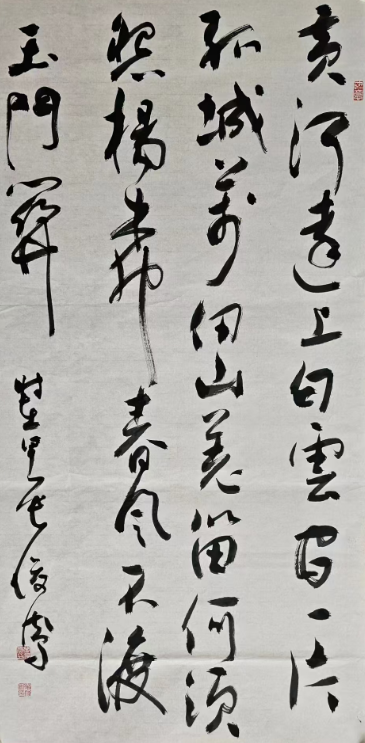 黄河遠上白雲間一片
孤城萬仞山羌笛何須
怨楊柳春風不渡
玉門關